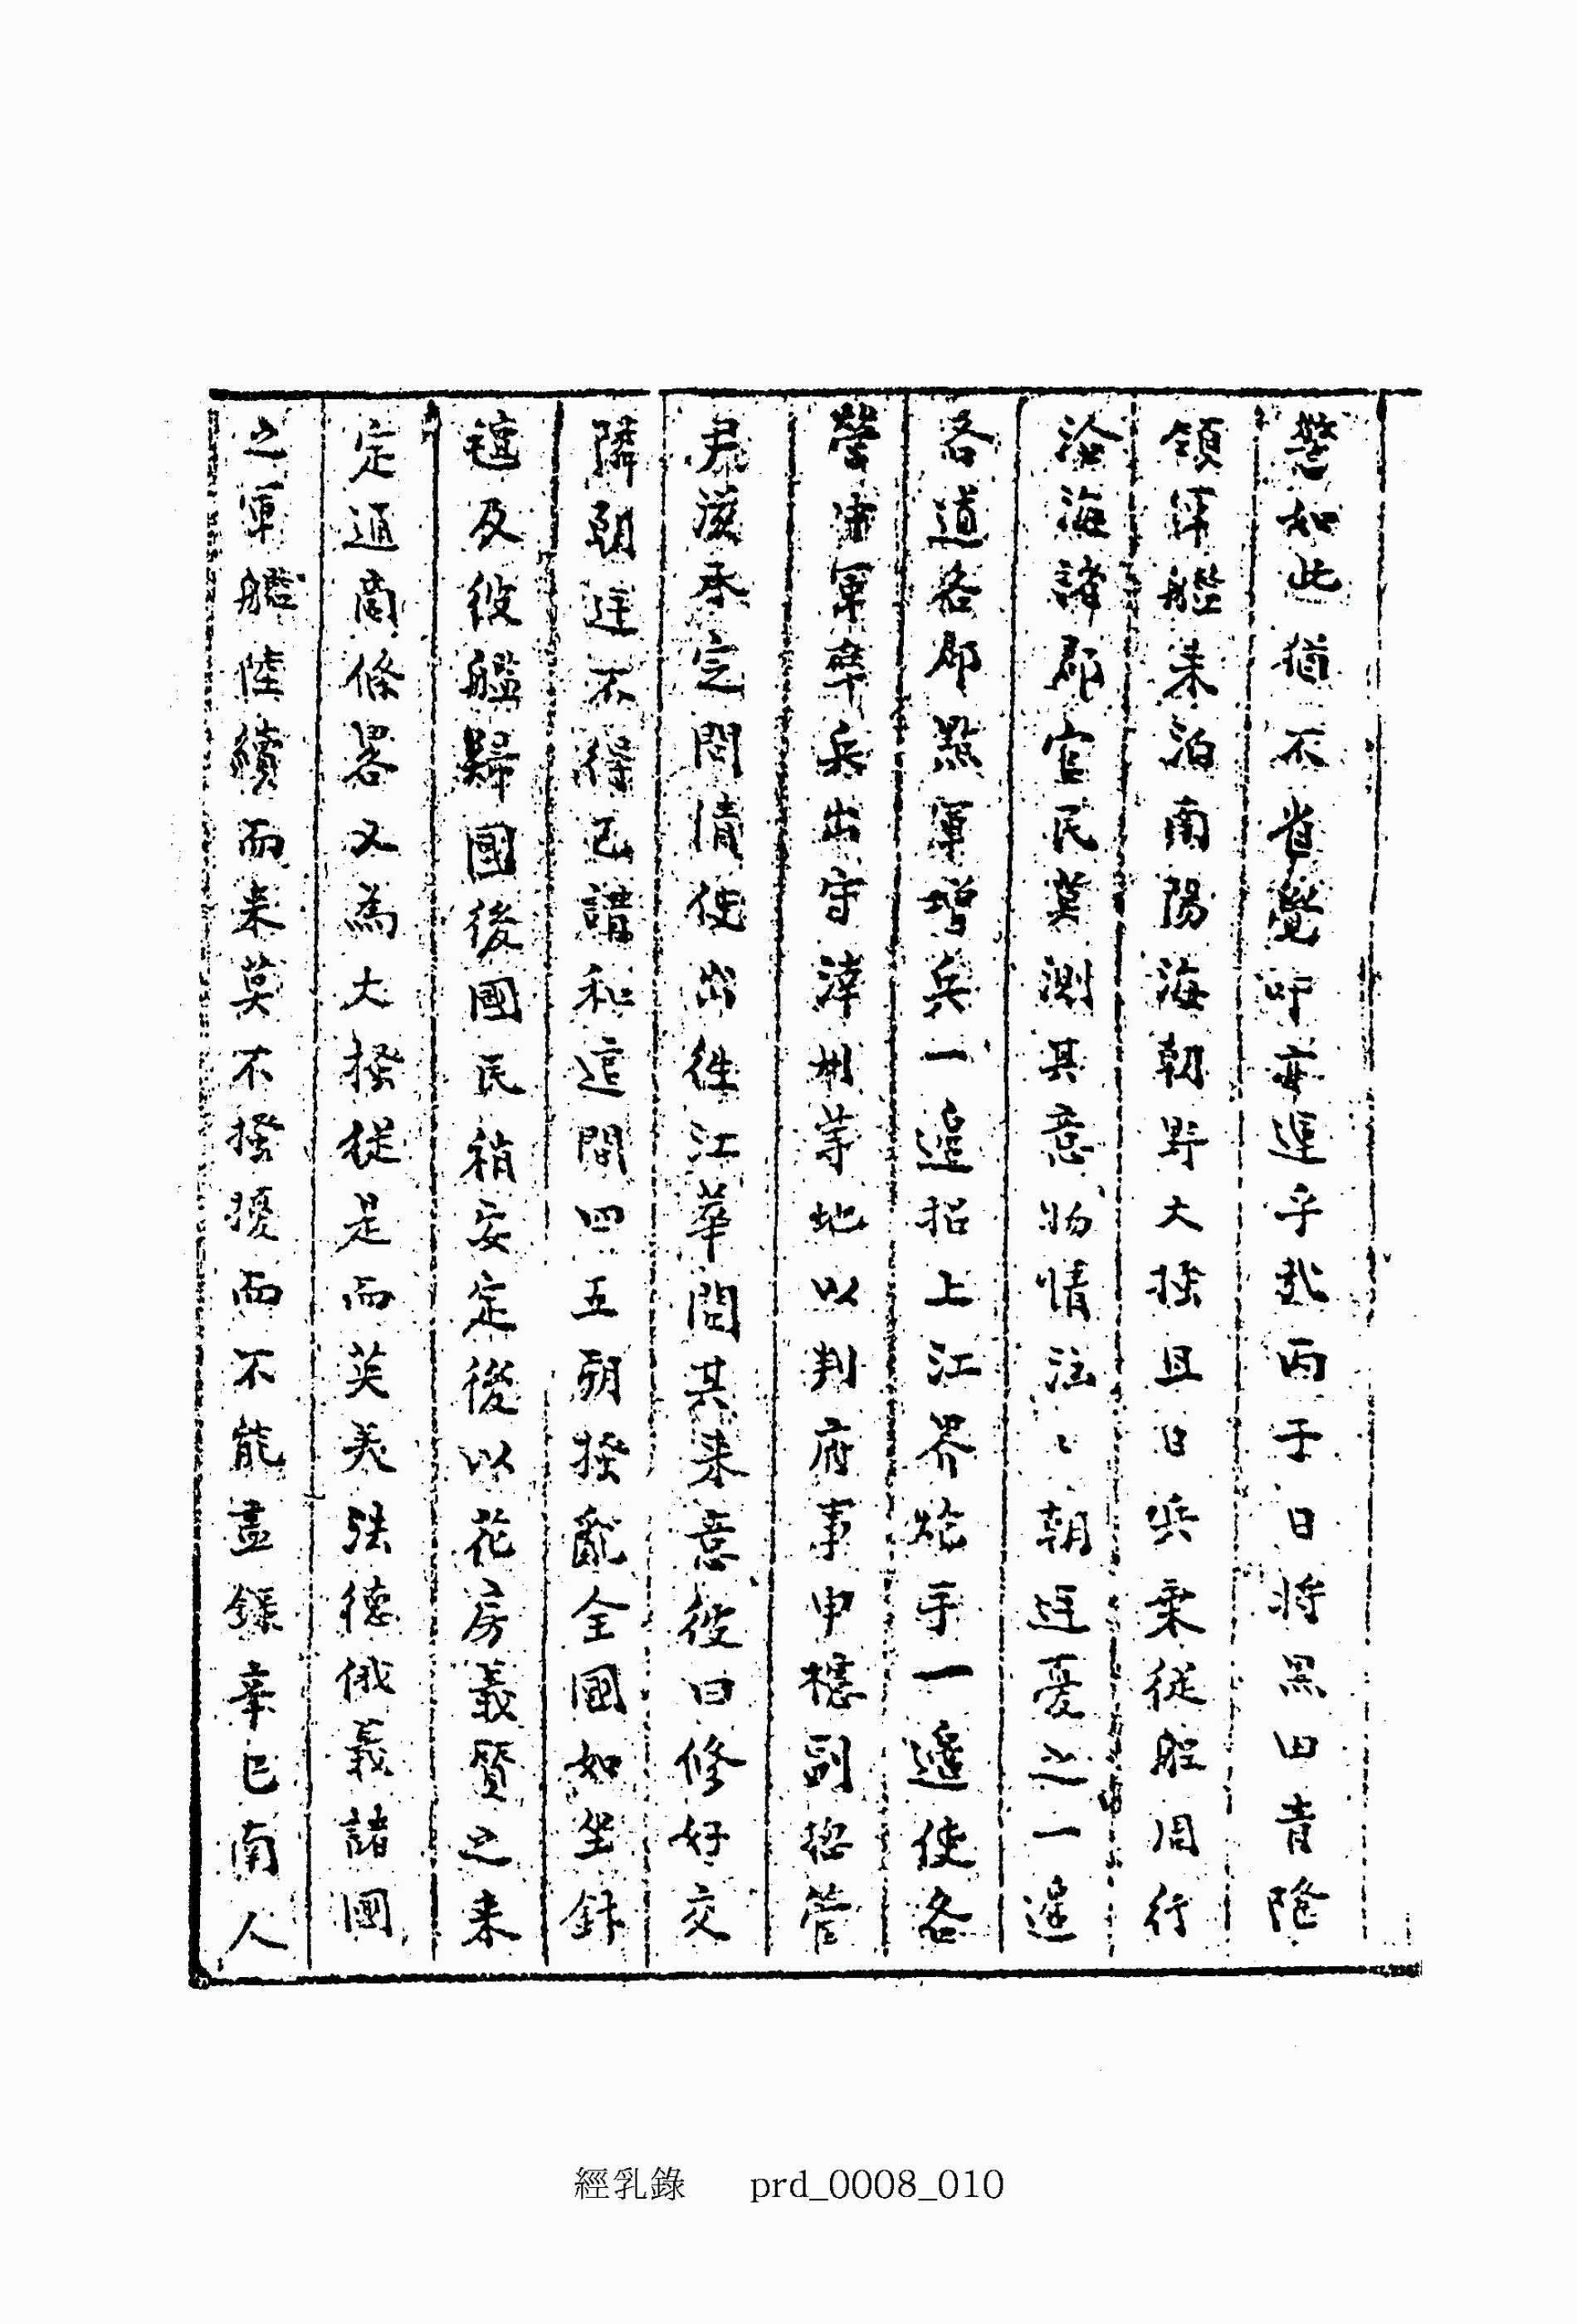 警如此猶不省覺吁亦運乎哉丙子日將黑田青隆
領軍艦来泊南陽海朝野大搔且日兵乘從船周行
沿海諸郡官民莫測其意物情汹〻朝廷憂之一邊
各道各郡點軍增兵一邊招上江界炮手一邊使各
營諸軍率兵出守漳州等地以判府事申櫶副揔管
尹滋承定問情使出徃江華問其来意彼曰修好交
隣朝廷不得已講和這間四五朔搔亂全國如坐針
氊及彼艦歸國後國民稍安定後以花房義質之来
定通商條畧又為大搔從是而英美法德俄義諸國
之軍艦陸續而来莫不搔擾而不能盡錄辛巳南人
經乳錄 prd_0008_010